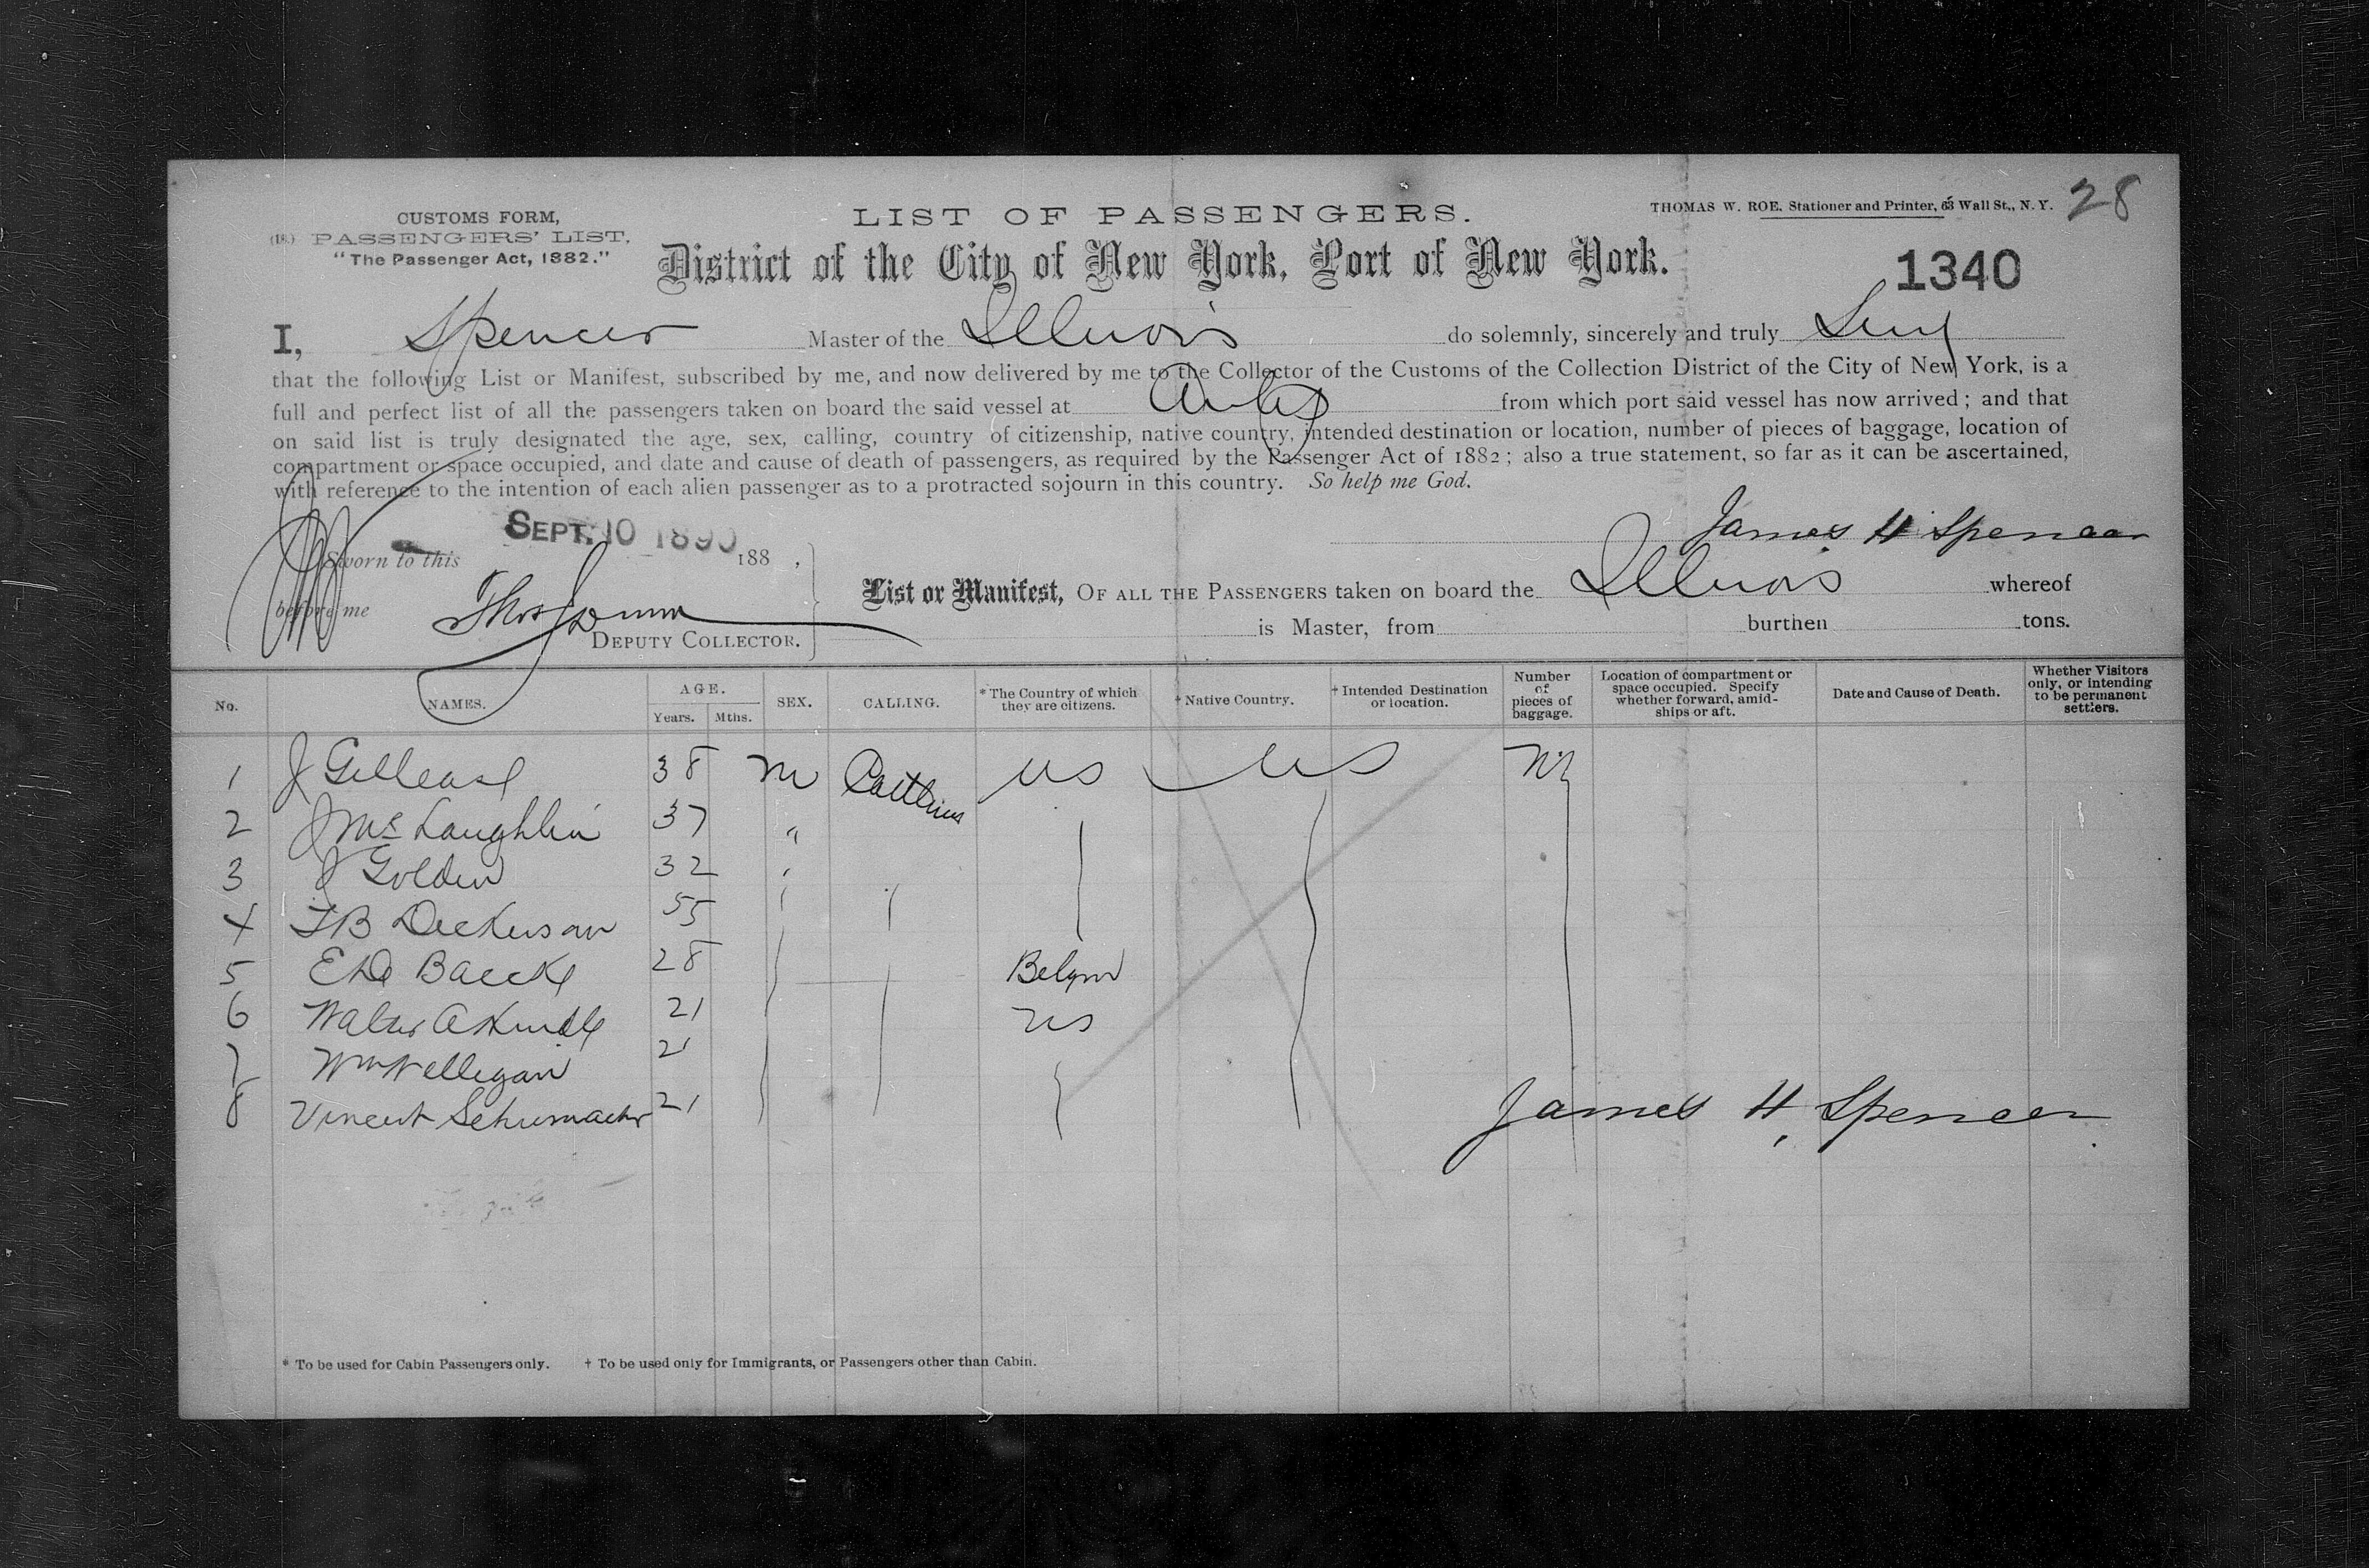 28
CUSTOMS FORM,
(18.) PASSENGERS' LIST.
"The Passenger Act, 1882."
LIST OF PASSENGERS.
THOMAS W. ROE. Stationer and Printer, 63 Wall St., N. Y.
District of the City of New York, Port of New York.
1340
I, Spencer Master of the Illinois do solemnly, sincerely and truly
that the following List or Manifest, subscribed by me, and now delivered by me to the Collector of the Customs of the Collection District of the City of New York, is a
full and perfect list of all the passengers taken on board the said vessel at from which port said vessel has now arrived; and that
on said list is truly designated the age, sex, calling, country of citizenship, native country, intended destination or location, number of pieces of baggage, location of
compartment or space occupied, and date and cause of death of passengers, as required by the Passenger Act of 1882; also a true statement, so far as it can be ascertained,
with reference to the intention of each alien passenger as to a protracted sojourn in this country. So help me God.
James H Spencer
Sworn to this SEPT. 10 1890 188 ,
before me
DEPUTY COLLECTOR.
List or Manifest, OF ALL THE PASSENGERS taken on board the Illinois whereof
is Master, from burthen tons.
No. NAMES. AGE. Years. Mths. SEX. CALLING. * The Country of which they are citizens. † Native Country. † Intended Destination or location. Number of pieces of baggage. Location of compartment or space occupied. Specify whether forward, amidships or aft. Date and Cause of Death. Whether Visitors only, or intending to be permanent settlers.
1 J 38 m US US
2 J McLaughlin 37 "
3 J Golden 32
4 Dickerson 55
5 28
6 21 US
7 21
8 Vincent Schumacher 21
James H. Spencer
* To be used for Cabin Passengers only. † To be used only for Immigrants, or Passengers other than Cabin.